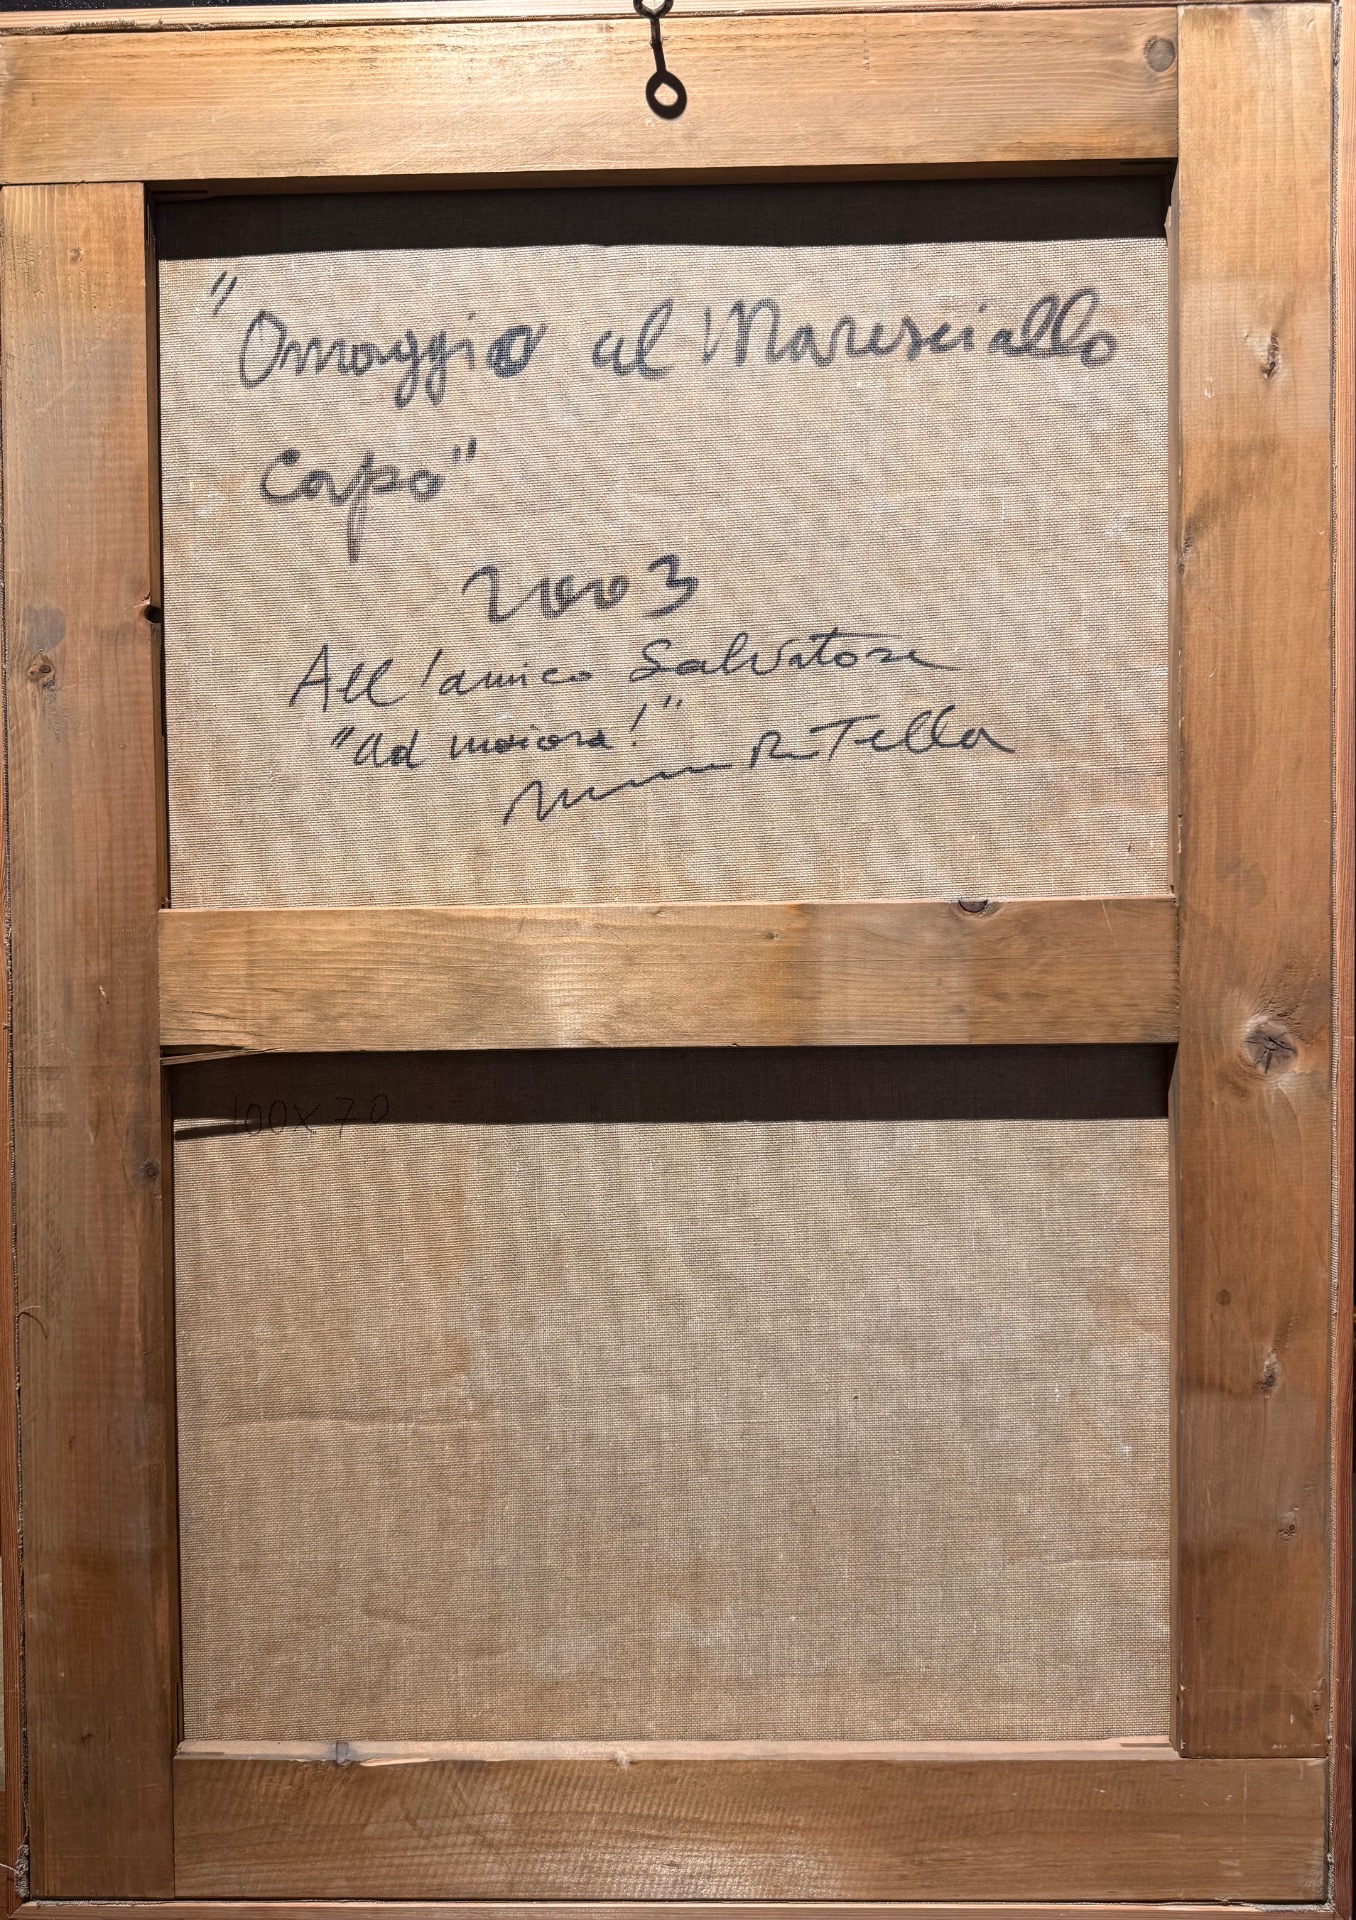 "Omaggio al Maresciallo
Capo"
2003
All'amico Salvatore
"ad maiora!"
Mimmo Rotella
100X70